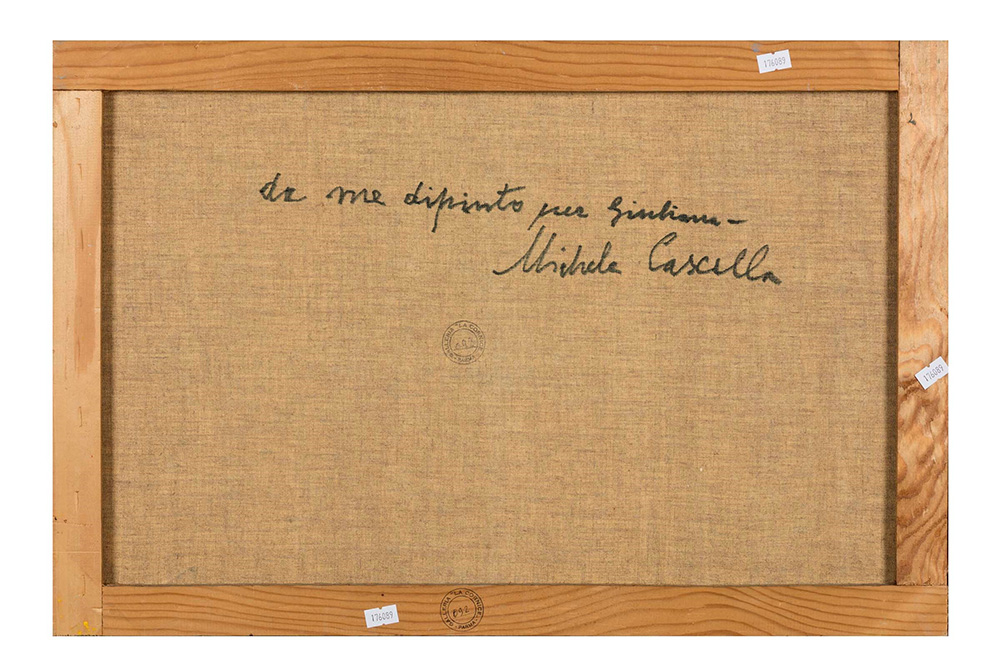 176089
da me dipinto per Giuliana-
Michele Cascella
GALLERIA "LA CORNICE"
PARMA
692
176089
GALLERIA "LA CORNICE"
PARMA
692
176089